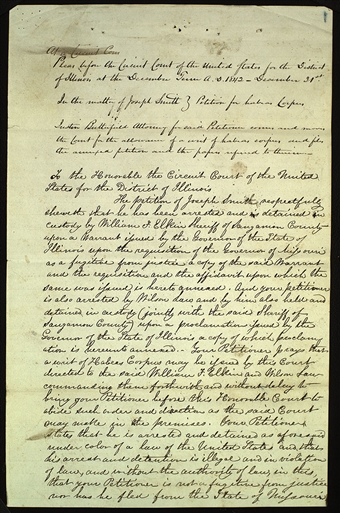 At a Circuit Cour
Pleas before the Circuit Court of the United States for the District
of Illinois at the December Term A.D. 1842 - December 31st
In the matter of Joseph Smith } Petition for habeas Corpus
Justin Butterfield Attorney for said Petitioner comes and moves
the Court for the allowance of a writ of habeas corpus and files
the annexed petition and the papers referred to therein
To the Honorable the Circuit Court of the United
States for the District of Illinois
The petition of Joseph Smith respectfully
sheweth that he has been arrested and is detained in
custody by William F. Elkin Sheriff of Sangamon County
upon a Warrant issued by the Governor of the State of
Illinois upon the requisition of the Governor of Missouri
as a fugitive from justice a copy of the said Warrant
and the requisition and the affidavit upon which the
same was issued, is hereto annexed. And your petitioner
is also arrested by Wilson Law and by him also held and
detained in custody (jointly with the said Sheriff of
Sangamon County) upon a proclamation issued by the
Governor of the State of Illinois a copy of which proclama
tion is hereunto annexed - Your Petitioner prays that
a writ of Habeas Corpus may be issued by this Court
directed to the said William F. Elkin and Wilson Law
commanding them forthwith and without delay to
bring your Petitioner before this Honorable Court to
abide such order and direction as the said Court
may make in the premises. Your Petitioner
states that he is arrested and detained as aforesaid
under color of a law of the United States and that
his arrest and detention is illegal and in violation
of law, and without the authority of law in this,
that your Petitioner is not a fugitive from justice
nor has he fled from the State of Missouri